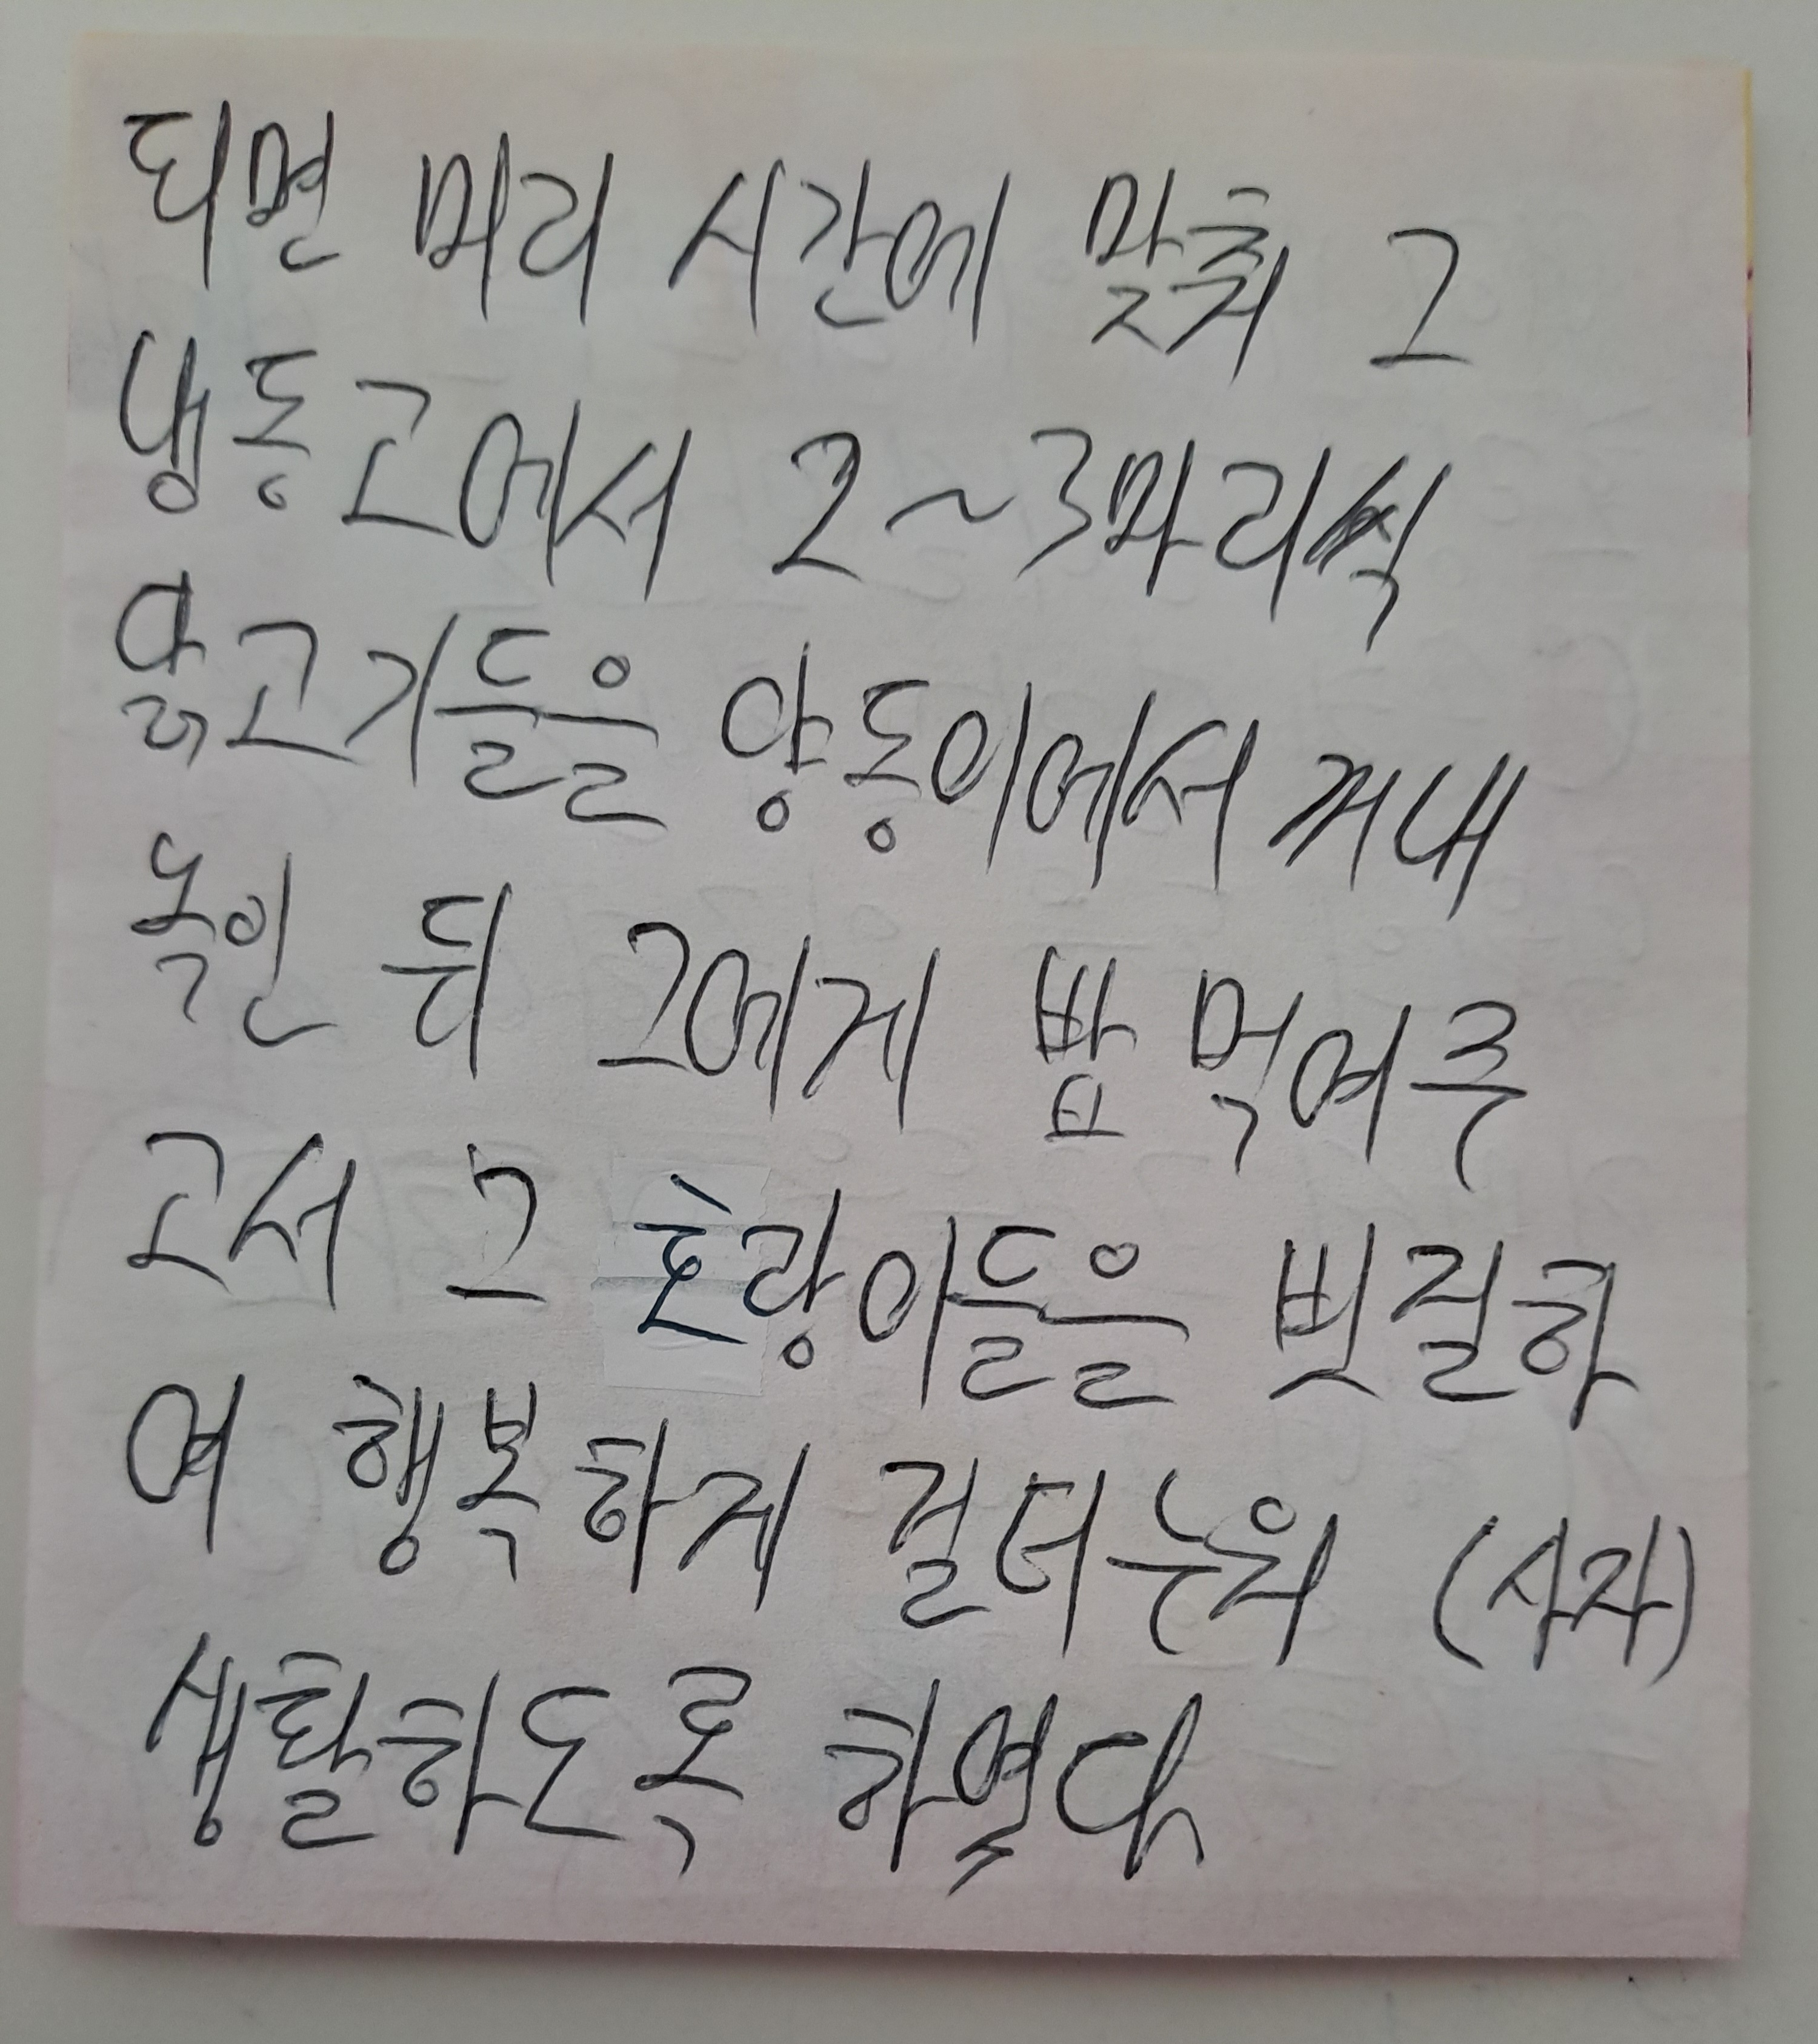 되면 미리 시간에 맞춰 그
냉동고에서 2~3마리씩
닭고기들을 양동이에서 꺼내
녹인 뒤 그에게 밥 먹여주
고서 그 호랑이들을 빗질하
여 행복하게 길더누워 (사자)
생활하도록 하였다